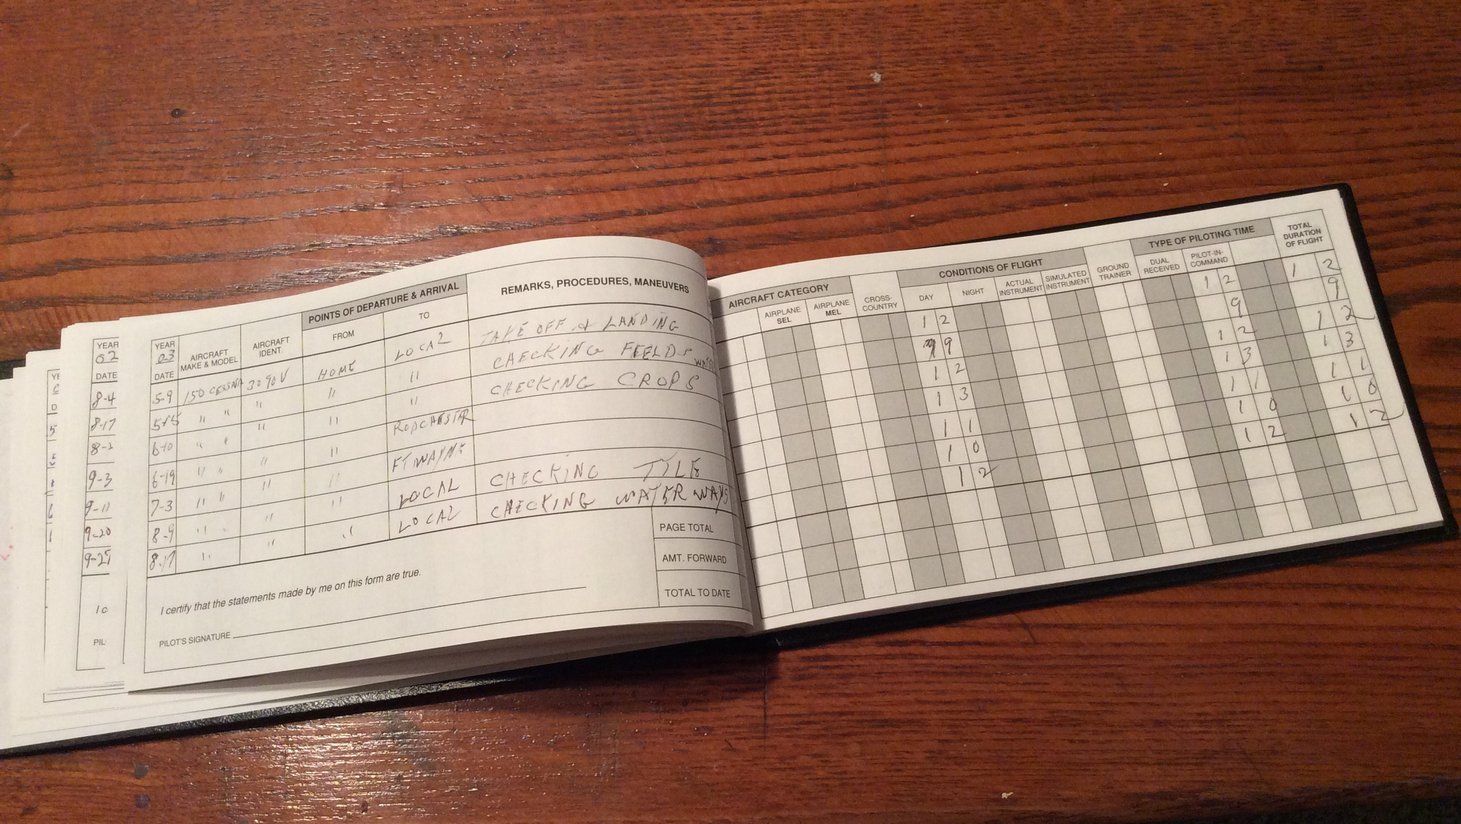 YEAR 02
DATE
8-4
8-17
9-3
9-11
9-20
9-25
10
PIL
YEAR 03
DATE
AIRCRAFT MAKE & MODEL
AIRCRAFT IDENT.
POINTS OF DEPARTURE & ARRIVAL
FROM
TO
REMARKS, PROCEDURES, MANEUVERS
5-9 150 CESSNA 3090V HOME LOCAL TAKE OFF & LANDING
" " " " " CHECKING FIELDS
6-10 " " " " " CHECKING CROPS
6-19 " " " " RODCHESTER
7-3 " " " " FT WAYNE
8-9 " " " " LOCAL CHECKING TYLE
8-17 " " " LOCAL CHECKING WATER WAYS
I certify that the statements made by me on this form are true.
PILOT'S SIGNATURE
PAGE TOTAL
AMT. FORWARD
TOTAL TO DATE
AIRCRAFT CATEGORY
AIRPLANE SEL
AIRPLANE MEL
CROSS-COUNTRY
CONDITIONS OF FLIGHT
DAY
NIGHT
ACTUAL INSTRUMENT
SIMULATED INSTRUMENT
GROUND TRAINER
TYPE OF PILOTING TIME
DUAL RECEIVED
PILOT-IN-COMMAND
TOTAL DURATION OF FLIGHT
1 2 1 2 1 2
9 9 9
1 2 1 2 1 2
1 3 1 3 1 3
1 1 1 1 1 1
1 0 1 0 1 0
1 2 1 2 1 2